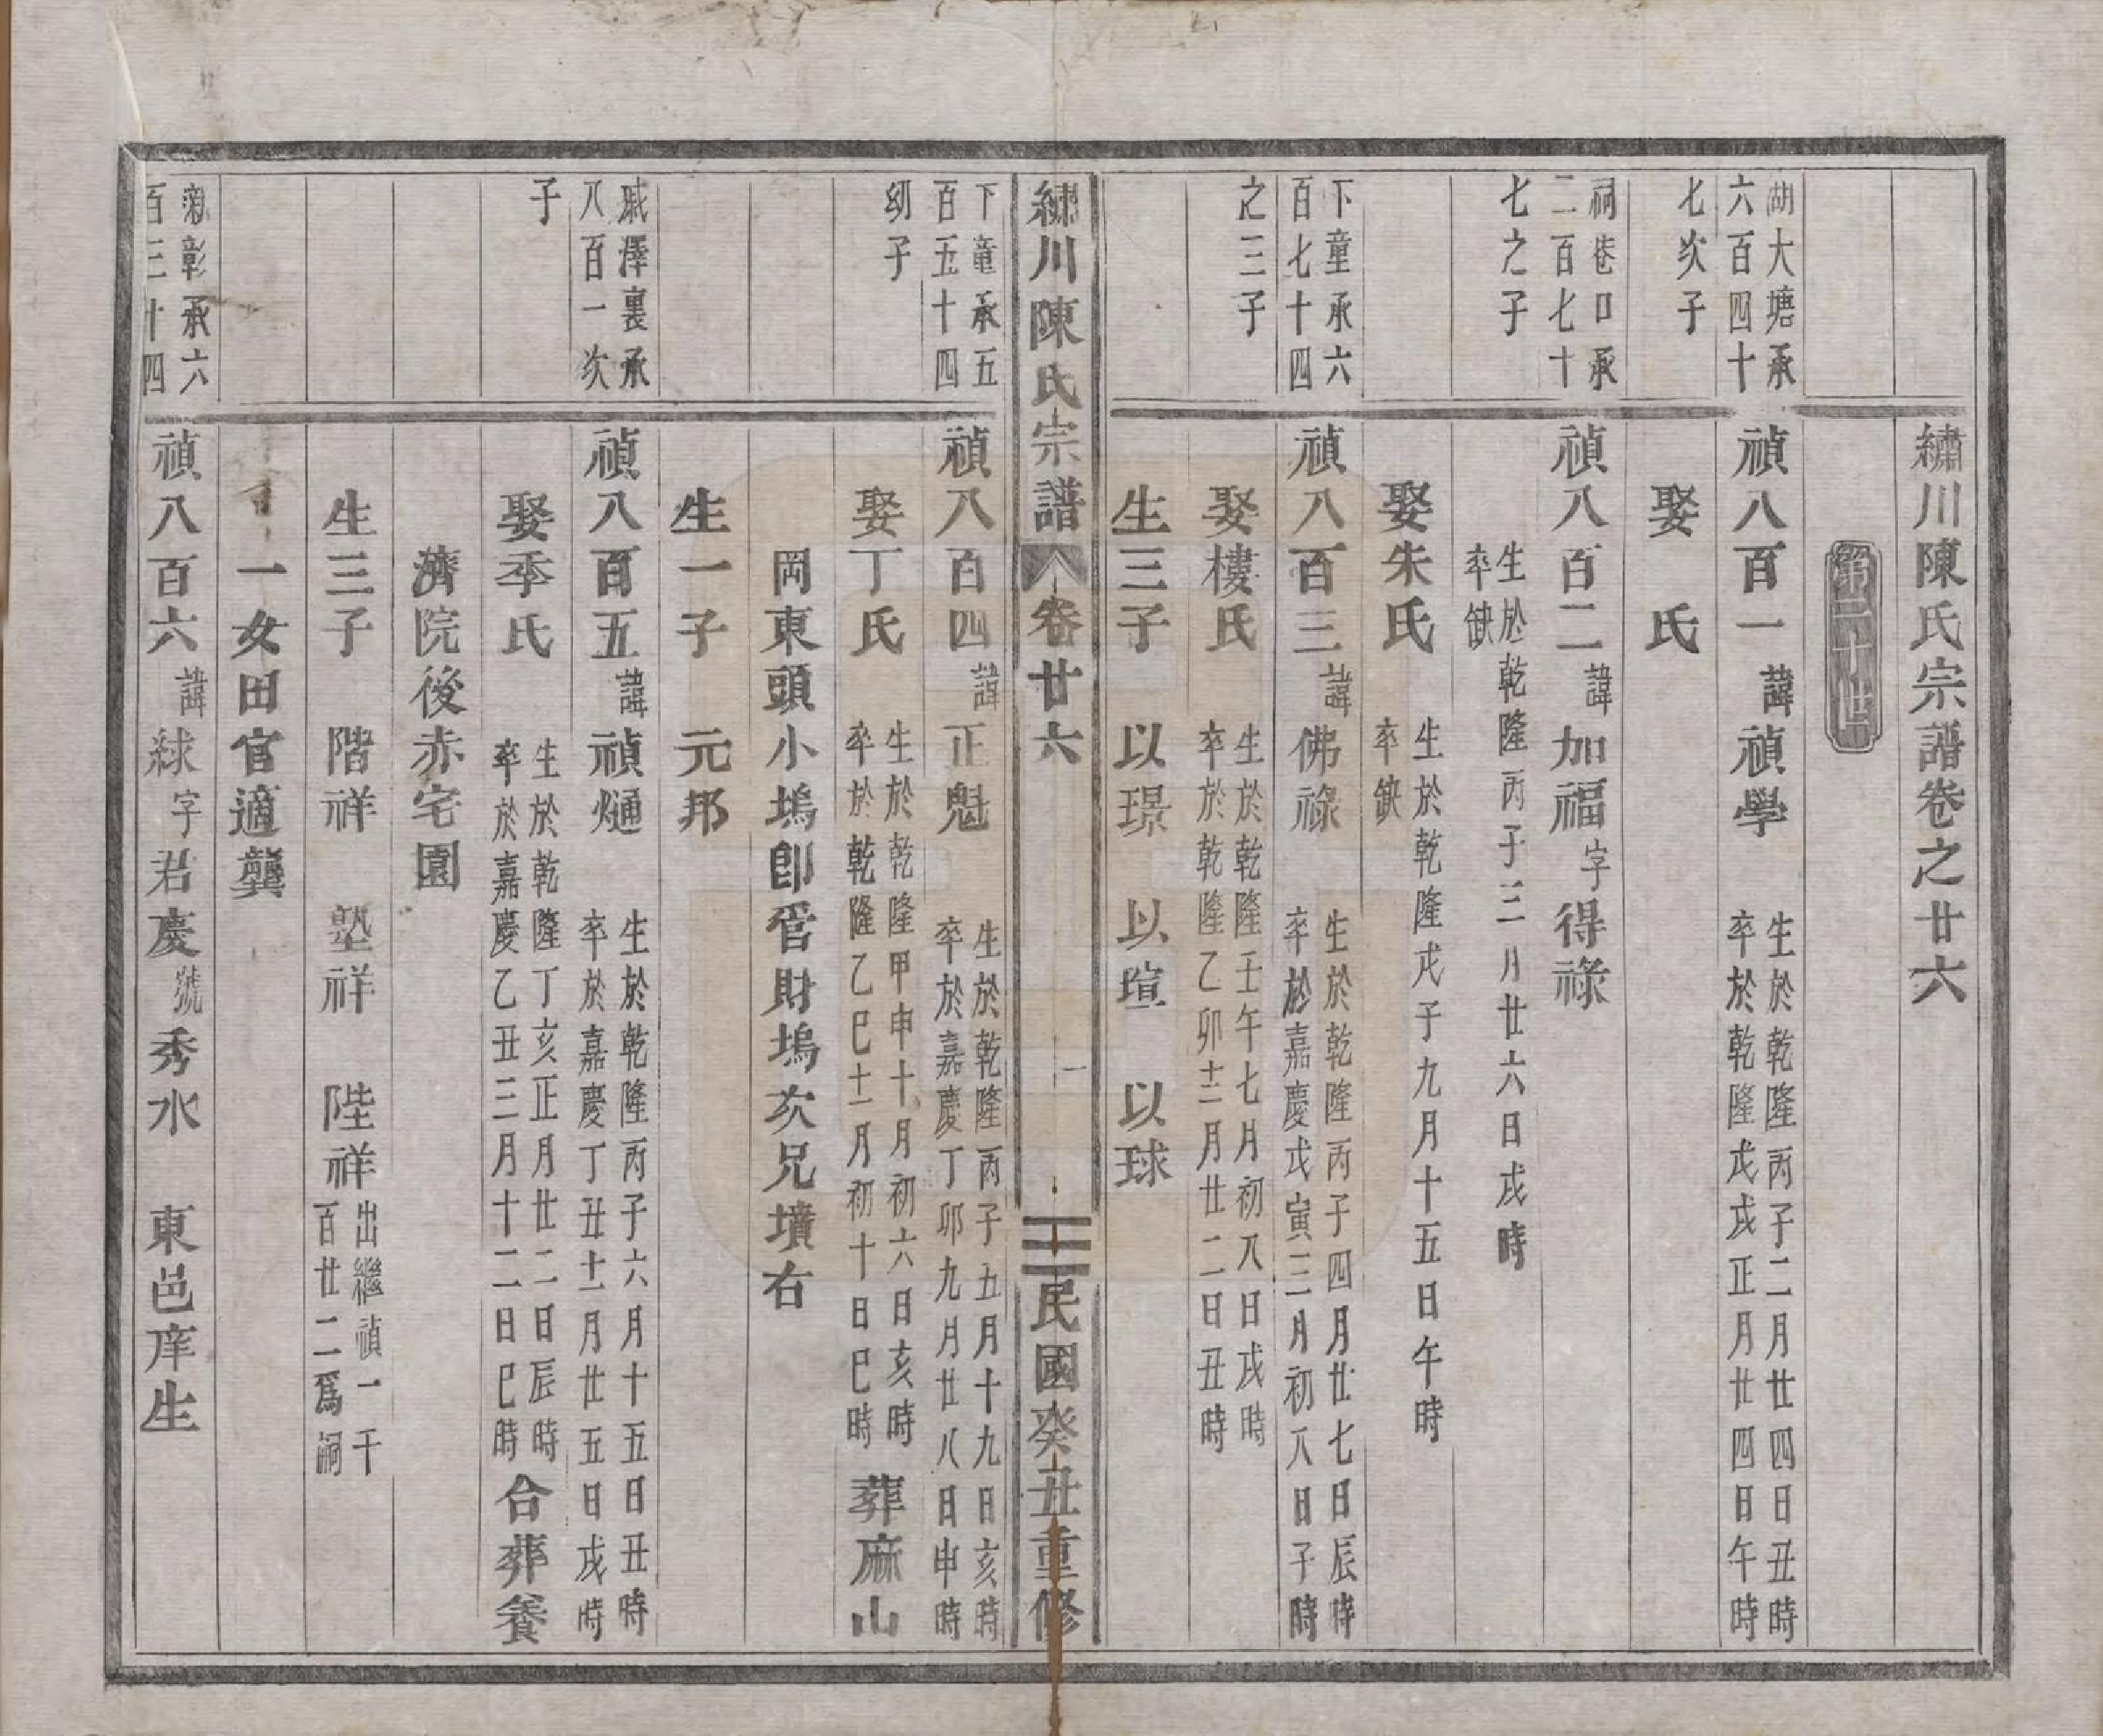 繡川陳氏宗譜卷之廿六
第二十世
湖大塘承
六百四十
七次子
禎八百一 諱禎學
生於乾隆丙子二月廿四日丑時
卒於乾隆戊戌正月廿四日午時
娶 氏
祠巷口承
二百七十
七之子
禎八百二 諱加福 字得祿
生於乾隆丙子三月廿六日戌時
卒缺
娶朱氏
生於乾隆戊子九月十五日午時
卒缺
下童承六
百七十四
之三子
禎八百三 諱佛祿
生於乾隆丙子四月廿七日辰時
卒於嘉慶戊寅三月初八日子時
娶樓氏
生於乾隆壬午七月初八日戌時
卒於乾隆乙卯十二月廿二日丑時
生三子 以璟 以瑄 以球
繡川陳氏宗譜 卷廿六 一 民國癸丑重修
下童承五
百五十四
幼子
禎八百四 諱正魁
生於乾隆丙子五月十九日亥時
卒於嘉慶丁卯九月廿八日申時
娶丁氏
生於乾隆甲申十月初六日亥時
卒於乾隆乙巳十一月初十日巳時
葬麻山
岡東頭小塢卽官財塢次兄墳右
生一子 元邦
戚澤裏承
八百一次
子
禎八百五 諱禎㷁
生於乾隆丙子六月十五日丑時
卒於嘉慶丁丑十一月廿五日戌時
娶季氏
生於乾隆丁亥正月廿二日辰時
卒於嘉慶乙丑三月十二日巳時
合葬養
濟院後赤宅園
生三子 階祥 塾祥 陛祥
出繼禎一千
百廿二爲嗣
一女田官適龔
新彰承六
百三十四
禎八百六 諱絿 字君慶 號秀水 東邑庠生